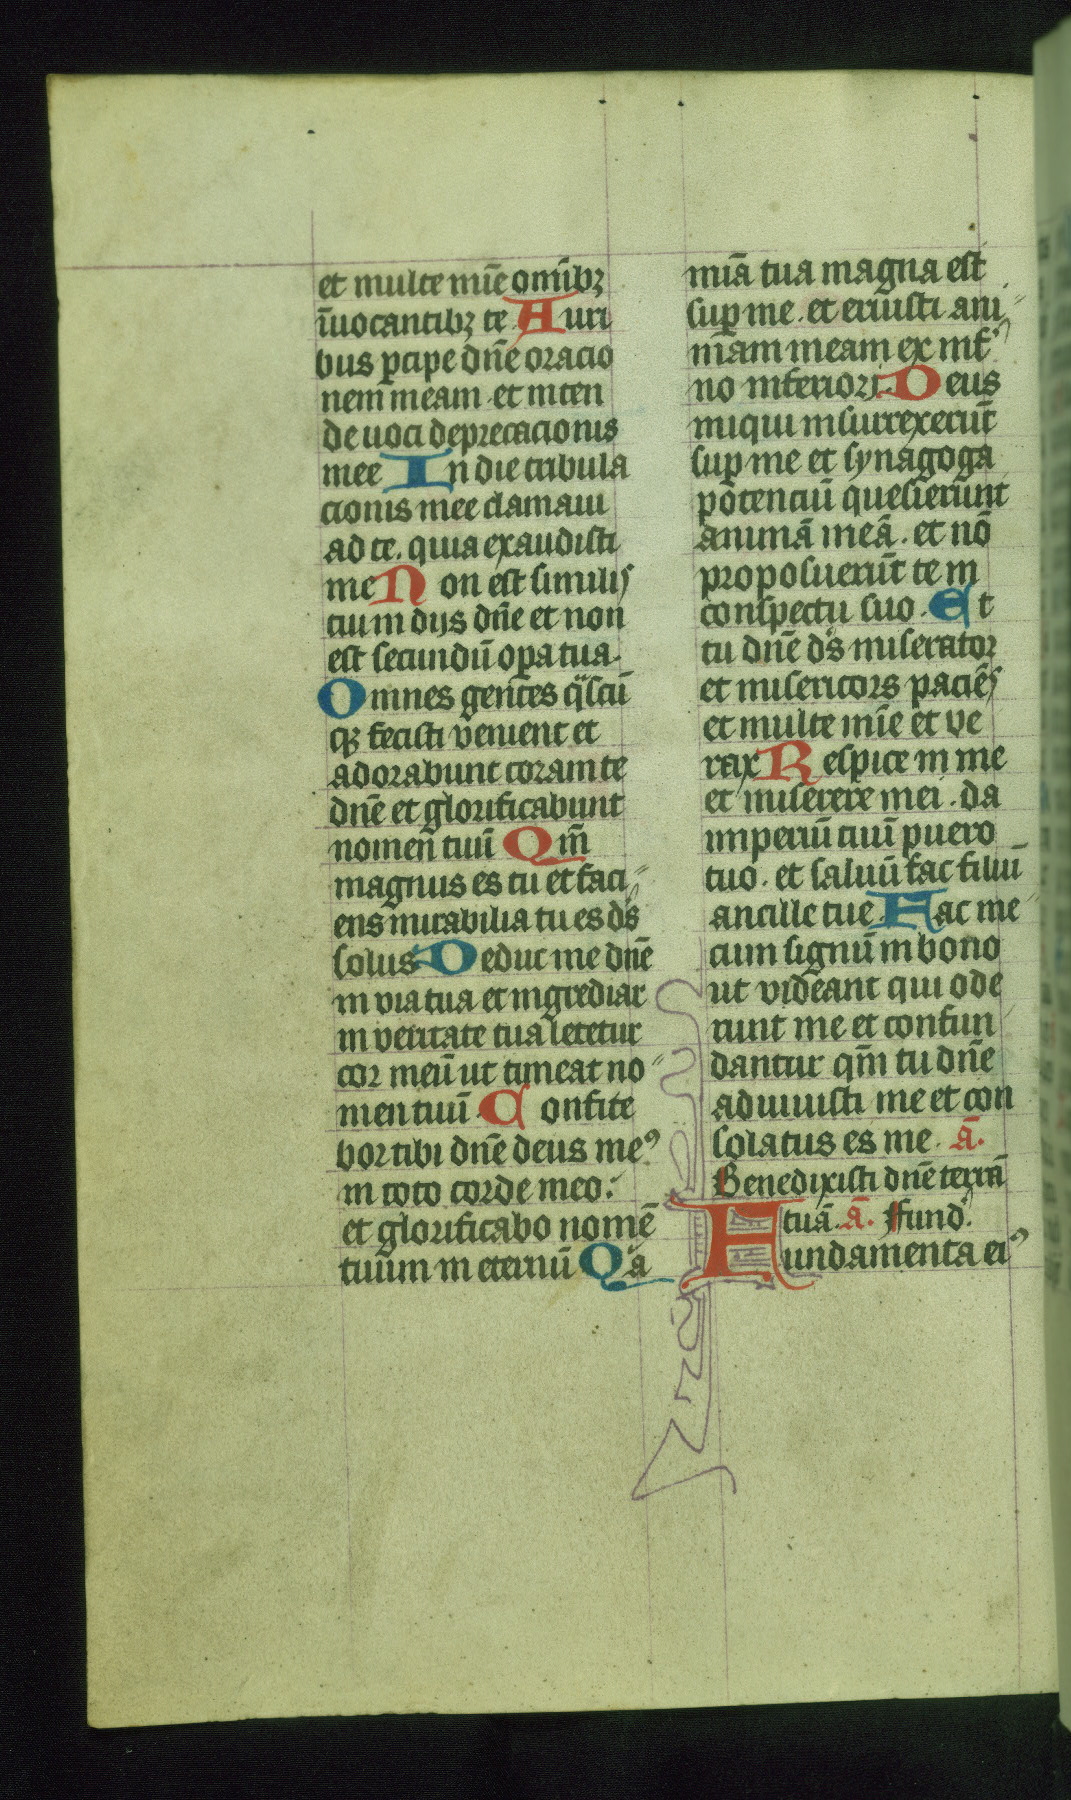 et multe mīe omībꝫ
īuocantibꝫ te Auri
bus ꝑcipe dn̄e oracio
nem meam et inten
de uoci deprecacionis
mee In die tribula
cionis mee clamaui
ad te. quia exaudisti
me Non est similis
tui in dijs dn̄e et non
est secundū oꝑa tua.
Omnes gentes q̄scū
qꝫ fecisti venient et
adorabunt coram te
dn̄e et glorificabunt
nomen tuū Qm̄
magnus es tu et faci
ens mirabilia tu es ds̄
solus Deduc me dn̄e
in via tua et ingrediar
in veritate tua letetur
cor meū ut timeat no
men tuū. Confite
bor tibi dn̄e deus meꝰ
in toto corde meo.
et glorificabo nomē
tuum in eternū Qa
mīa tua magna est
suꝑ me. et eruisti ani
mam meam ex inf
no inferiori. Deus
iniqui insurrexerūt
suꝑ me et synagoga
potenciū quesierunt
animā meā. et nō
proposuerūt te in
conspectu suo. Et
tu dn̄e ds̄ miserator
et misericors paciēs
et multe mīe et ve
rax Respice in me
et miserere mei. da
imperiū tuū puero
tuo. et saluū fac filiū
ancille tue. Fac me
cum signū in bono
ut videant qui ode
runt me et confun
dantur qm̄ tu dn̄e
adiuuisti me et con
solatus es me. ā.
Benedixisti dn̄e terrā
tuā. ā. Fund.
Fundamenta eiꝰ